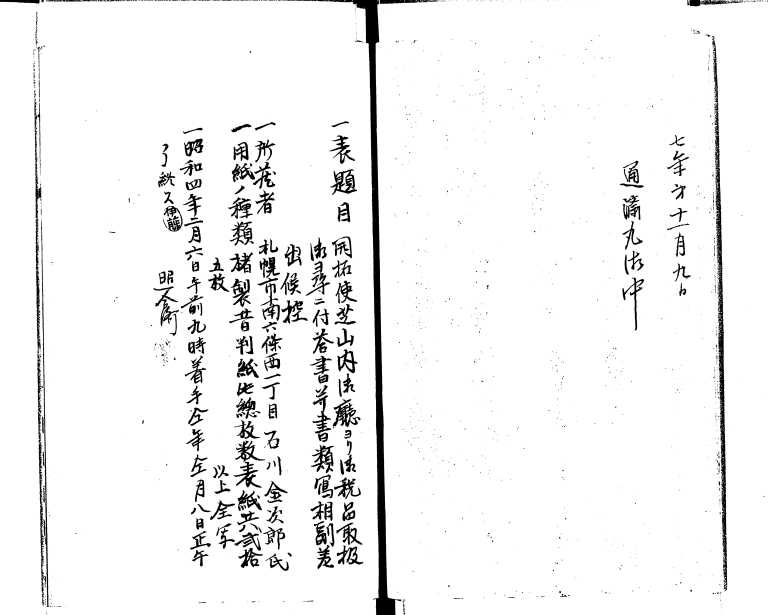 七年第十一月九日
通済丸御中
一表題目 開拓使芝山内御廳ヨリ御税品取扱
御尋ニ付答書并書類寫相副差
出候控
一所蔵者 札幌市南六條西一丁目 石川金次郎氏
一用紙ノ種類 楮製昔判紙此總枚数表紙共弐拾
五枚 以上仝牟
一昭和四年二月六日午前九時着手仝年仝月八日正午
了終ス 伊藤